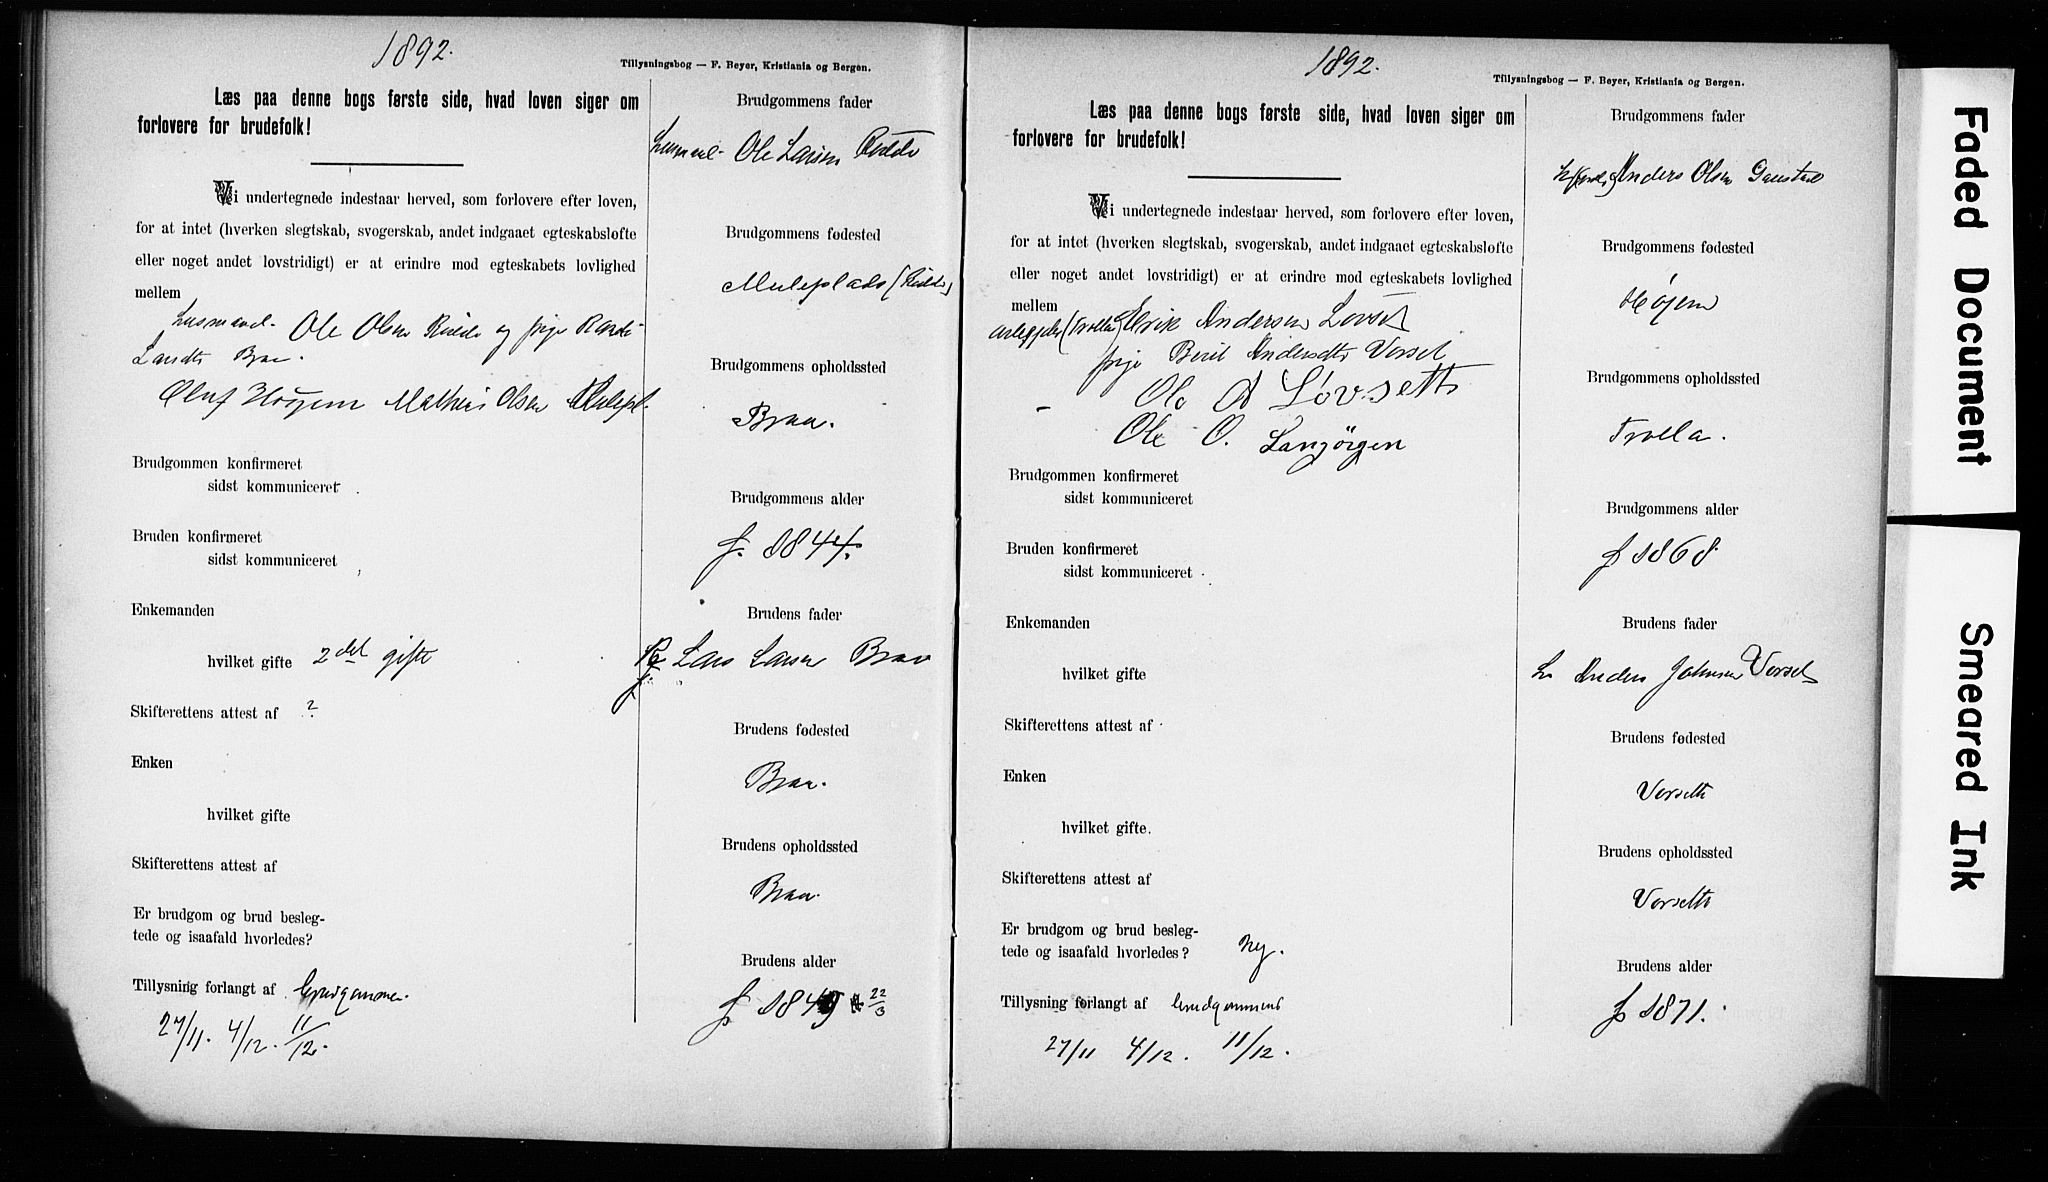 1892.
Tillysningsbog — F. Beyer, Kristiania og Bergen.
Læs paa denne bogs første side, hvad loven siger om
forlovere for brudefolk!
Vi undertegnede indestaar herved, som forlovere efter loven,
for at intet (hverken slegtskab, svogerskab, andet indgaaet egteskabsløfte
eller noget andet lovstridigt) er at erindre mod egteskabets lovlighed
mellem
Ole Olsen og pige
Larsdtr Braa.
Oluf Høyem Mathias Olsen
Brudgommen konfirmeret
sidst kommuniceret
Bruden konfirmeret
sidst kommuniceret
Enkemanden
hvilket gifte 2det gifte
Skifterettens attest af ?
Enken
hvilket gifte
Skifterettens attest af
Er brudgom og brud besleg-
tede og isaafald hvorledes?
Tillysning forlangt af brudgommen.
27/11. 4/12. 11/12.
Brudgommens fader
Ole Larsen
Brudgommens fødested
Muleplads
Brudgommens opholdssted
Braa.
Brudgommens alder
f. 1844.
Brudens fader
Lars Larsen Braa
Brudens fødested
Braa.
Brudens opholdssted
Braa.
Brudens alder
f 22/3
1892.
Tillysningsbog — F. Beyer, Kristiania og Bergen.
Læs paa denne bogs første side, hvad loven siger om
forlovere for brudefolk!
Vi undertegnede indestaar herved, som forlovere efter loven,
for at intet (hverken slegtskab, svogerskab, andet indgaaet egteskabsløfte
eller noget andet lovstridigt) er at erindre mod egteskabets lovlighed
mellem
(Trolla) Erik Andersen Løvset
pige Berit Andersdtr Vorset
Ole A Løvsett
Ole O. Langørgen
Brudgommen konfirmeret
sidst kommuniceret
Bruden konfirmeret
sidst kommuniceret
Enkemanden
hvilket gifte
Skifterettens attest af
Enken
hvilket gifte.
Skifterettens attest af
Er brudgom og brud besleg-
tede og isaafald hvorledes? Nej.
Tillysning forlangt af brudgommen
27/11 4/12. 11/12.
Brudgommens fader
Anders Olsen Gaustad
Brudgommens fødested
Høyem
Brudgommens opholdssted
Trolla.
Brudgommens alder
f 1868
Brudens fader
Anders Johnsen Vorset
Brudens fødested
Vorsett
Brudens opholdssted
Vorsett
Brudens alder
f 1871.
Faded Document
Smeared Ink